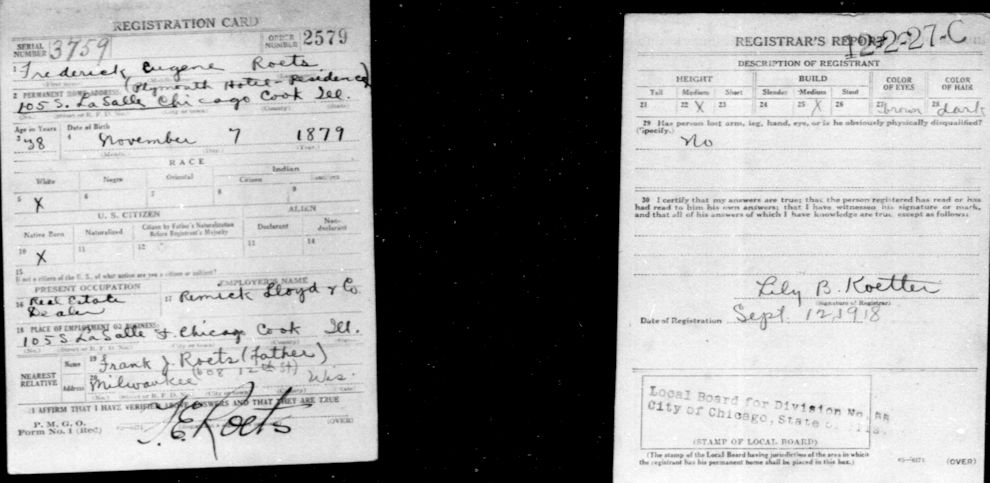 REGISTRATION CARD
SERIAL NUMBER 3759 ORDER NUMBER 2579
1 Frederick Eugene Roets
(Plymouth Hotel-Residence)
2 PERMANENT HOME ADDRESS:
105 S. LaSalle Chicago Cook Ill.
Age in Years Date of Birth
3 38 4 November 7 1879
(Month.) (Day.) (Year.)
RACE
White Negro Oriental Indian
Citizen
5 X 6 7 8 9
U. S. CITIZEN ALIEN
Native Born Naturalized Citizen by Father's Naturalization Before Registrant's Majority Declarant Non-declarant
10 X 11 12 13 14
15
If not a citizen of the U. S., of what nation are you a citizen or subject?
PRESENT OCCUPATION EMPLOYER'S NAME
16 Real Estate Dealer 17 Remick Lloyd & Co.
18 PLACE OF EMPLOYMENT OR BUSINESS:
105 S LaSalle St Chicago Cook Ill.
(No.) (Street or R. F. D. No.) (City or town) (County) (State)
NEAREST RELATIVE Name 19 Frank J. Roets (father)
Address 20 Milwaukee (608 12th St) Wis.
(No.) (Street or R. F. D. No.) (City or town) (County) (State)
I AFFIRM THAT I HAVE VERIFIED ABOVE ANSWERS AND THAT THEY ARE TRUE
P. M. G. O.
Form No. 1 (Red) F. E. Roets (OVER)
REGISTRAR'S REPORT 12-2-27-C
DESCRIPTION OF REGISTRANT
HEIGHT BUILD COLOR OF EYES COLOR OF HAIR
Tall Medium Short Slender Medium Stout
21 22 X 23 24 25 X 26 27 brown 28 dark
29 Has person lost arm, leg, hand, eye, or is he obviously physically disqualified?
(Specify.)
No
30 I certify that my answers are true; that the person registered has read or has
had read to him his own answers; that I have witnessed his signature or mark,
and that all of his answers of which I have knowledge are true, except as follows:
Lily B. Koetter
(Signature of Registrar)
Date of Registration Sept. 12, 1918
Local Board for Division No.
City of Chicago, State of
(STAMP OF LOCAL BOARD)
(The stamp of the Local Board having jurisdiction of the area in which
the registrant has his permanent home shall be placed in this box.)
(OVER)